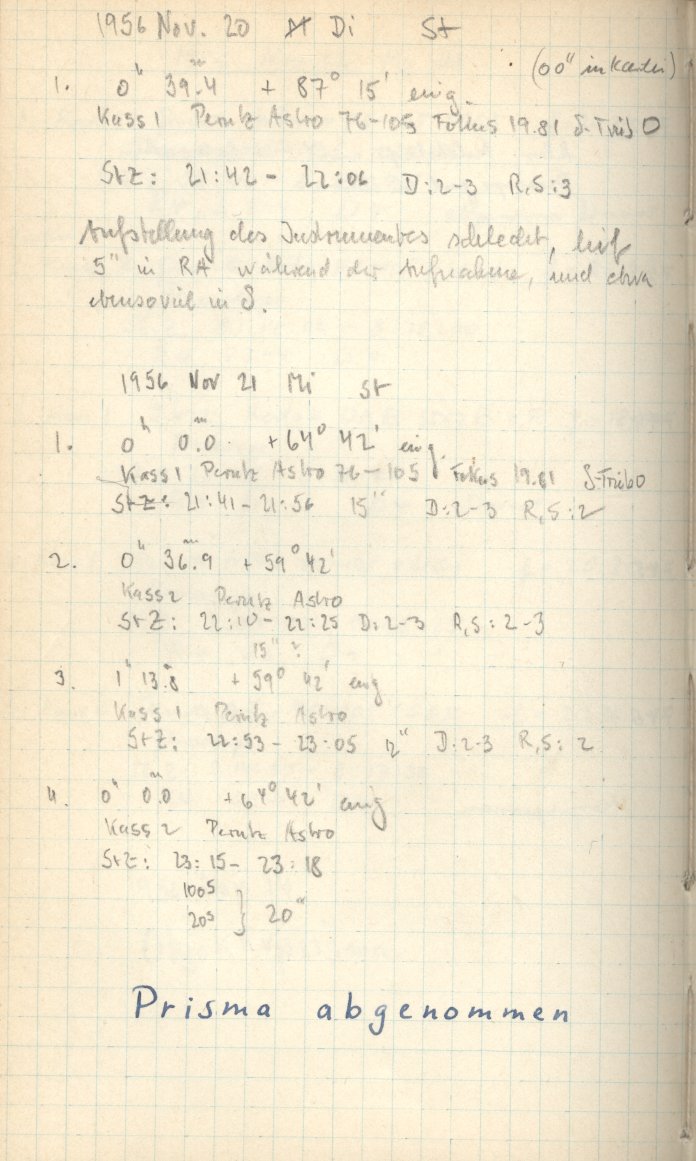 1956 Nov. 20 Di St
(00" in Kartei)
1. 0ʰ 39.ᵐ4 + 87° 15' eing.
Kass 1 Perutz Astro 76-105 Fokus 19.81 δ-Trieb 0
StZ: 21:42 - 22:06 D:2-3 R,S:3
Aufstellung des Instrumentes schlecht, lief
5" in RA während der Aufnahme, und etwa
ebensoviel in δ.
1956 Nov 21 Mi St
1. 0ʰ 0.ᵐ0 +64° 42' eing.
Kass 1 Perutz Astro 76-105 Fokus 19.81 δ-Trieb 0
StZ: 21:41 - 21:56 15" D:2-3 R,S:2
2. 0ʰ 36.ᵐ9 +59° 42'
Kass 2 Perutz Astro
StZ: 22:10 - 22:25 D:2-3 R,S:2-3
15" ?
3. 1ʰ 13.ᵐ8 +59° 42' eing
Kass 1 Perutz Astro
StZ: 22:53 - 23:05 12" D:2-3 R,S:2
4. 0ʰ 0.ᵐ0 +64° 42' eing
Kass 2 Perutz Astro
StZ: 23:15 - 23:18
100s
20s } 20"
Prisma abgenommen